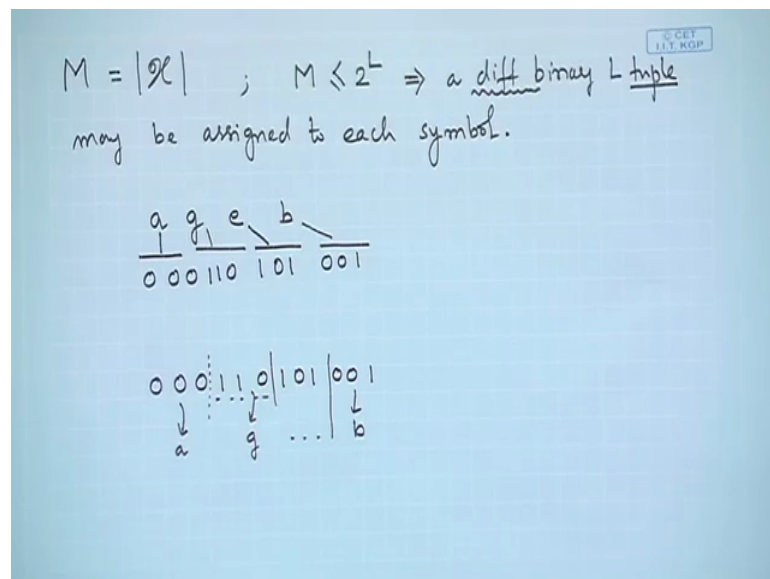 © CET
I.I.T. KGP
M = |𝒳| ; M ≤ 2^L ⇒ a diff binary L tuple
may be assigned to each symbol.
a g e b
000 110 101 001
000 110 101 001
a g ... b